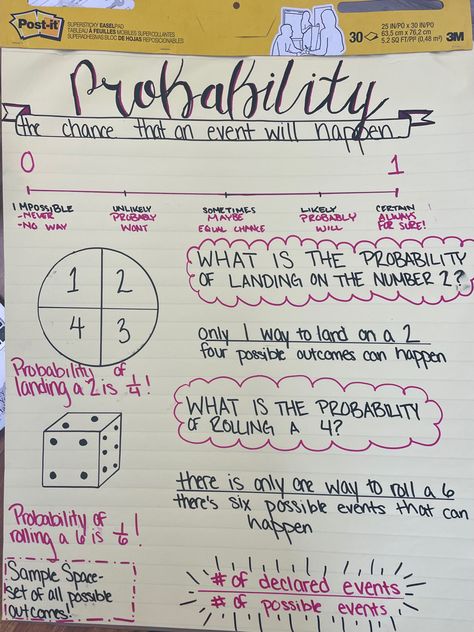 Post-it
SUPERSTICKY EASEL PAD
TABLEAU À FEUILLES MOBILES SUPERCOLLANTES
SUPERADHESIVAS BLOC DE HOJAS REPOSICIONABLES
30
25 IN/PO x 30 IN/PO
63,5 cm x 76,2 cm
5.2 SQ FT/PI² (0,48 m²)
3M
Probability
the chance that an event will happen
0 1
IMPOSSIBLE
-NEVER
-NO WAY
UNLIKELY
PROBABLY
WONT
SOMETIMES
MAYBE
EQUAL CHANCE
LIKELY
PROBABLY
WILL
CERTAIN
ALWAYS
FOR SURE!
1 2
4 3
WHAT IS THE PROBABILITY
OF LANDING ON THE NUMBER 2?
only 1 way to land on a 2
four possible outcomes can happen
Probability of
landing a 2 is 1/4!
WHAT IS THE PROBABILITY
OF ROLLING A 4?
there is only one way to roll a 6
there's six possible events that can
happen
Probability of
rolling a 6 is 1/6!
Sample Space-
set of all possible
outcomes!
# of declared events
# of possible events